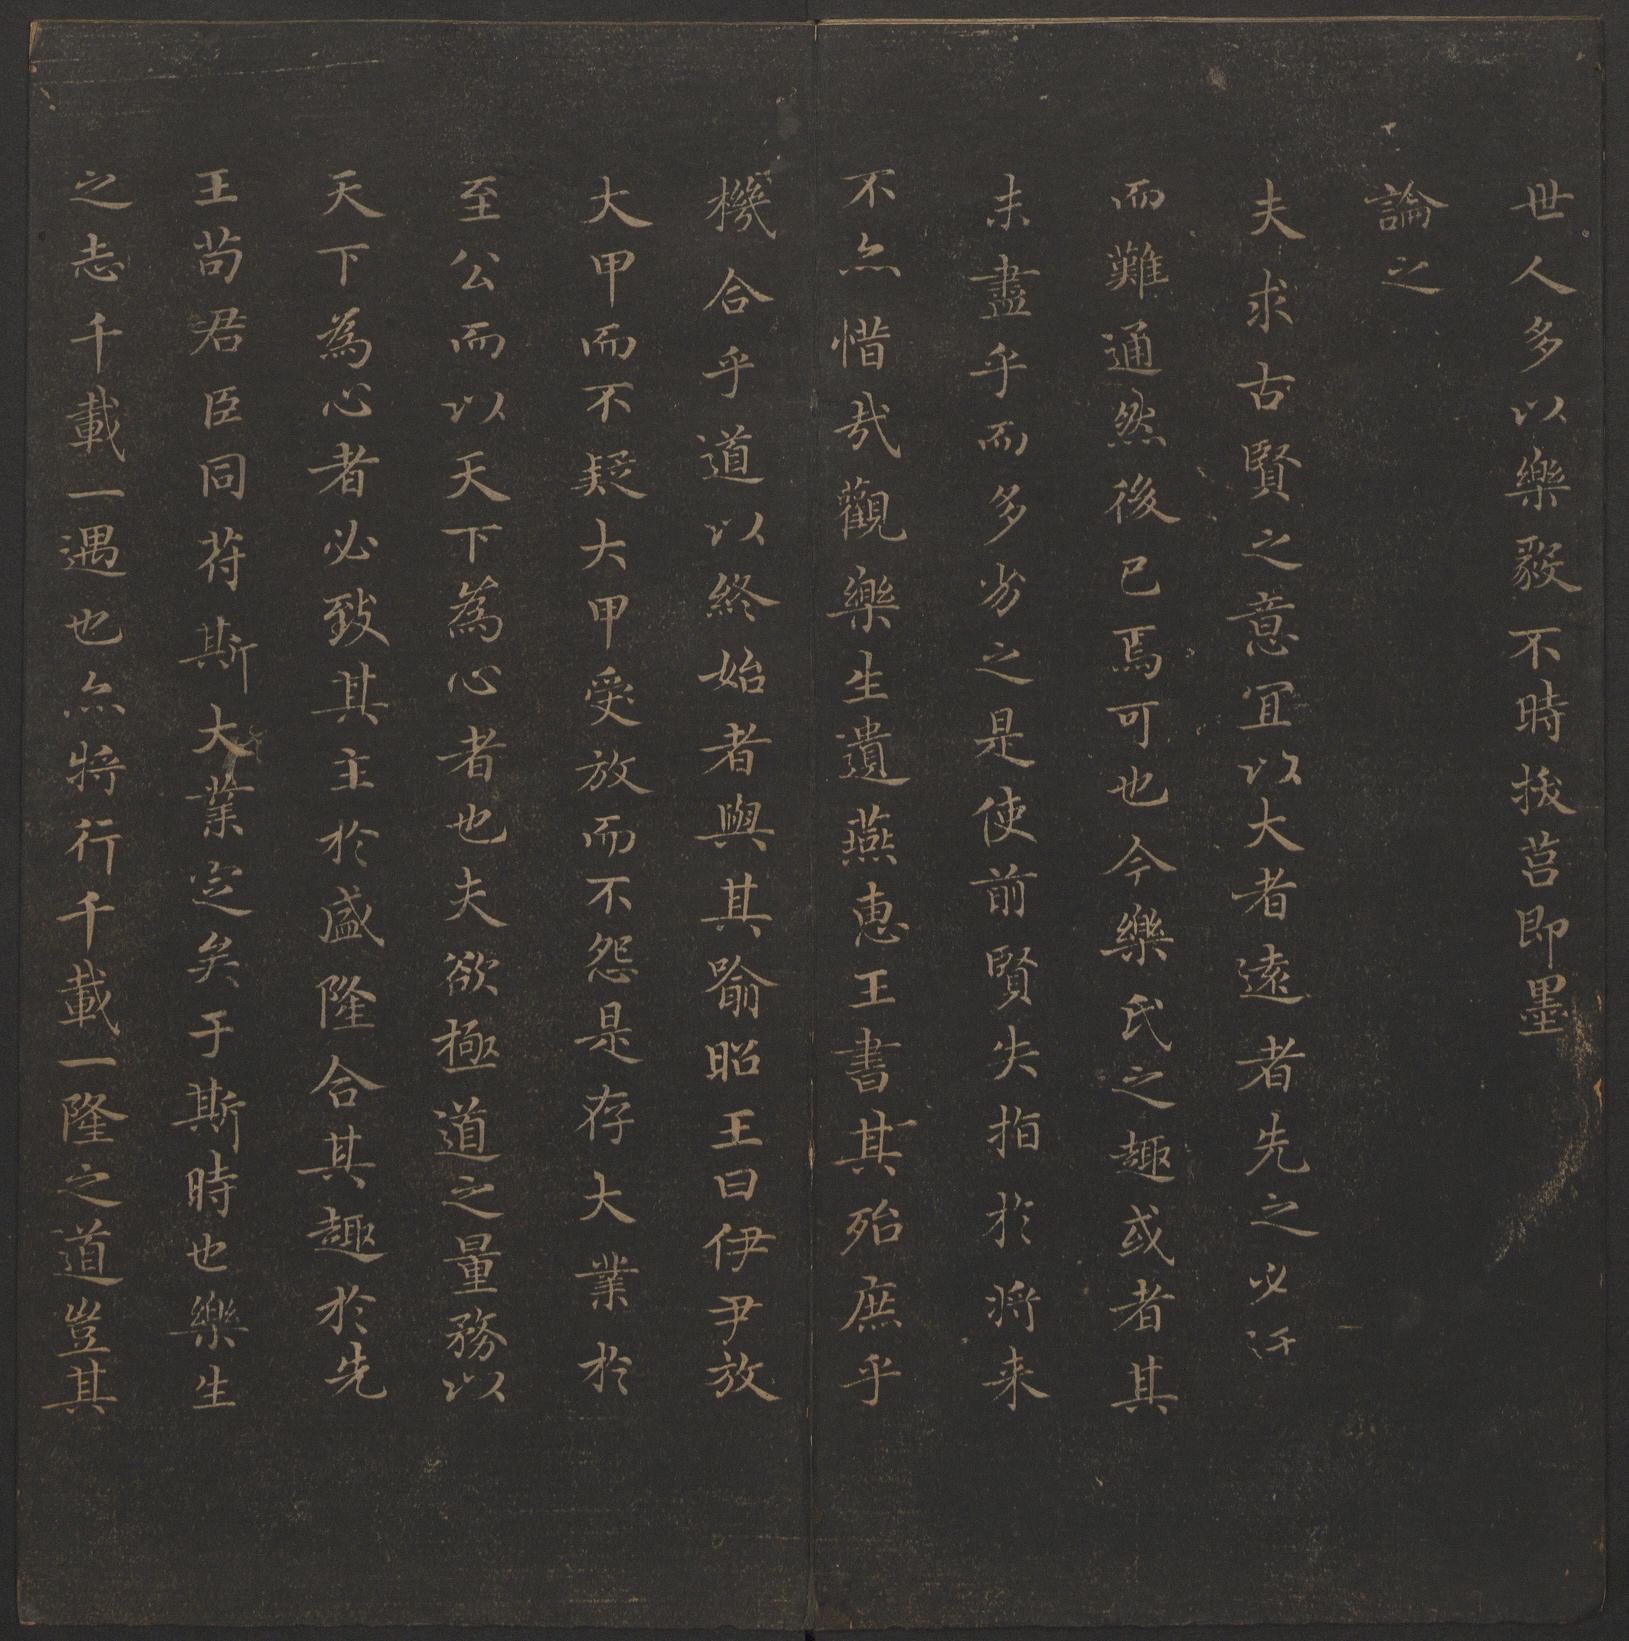 世人多以樂毅不時拔莒即墨
論之
夫求古賢之意宜以大者遠者先之必迂
而難通然後已焉可也今樂氏之趣或者其
未盡乎而多劣之是使前賢失指於將来
不亦惜哉觀樂生遺燕惠王書其殆庶乎
機合乎道以終始者與其喻昭王曰伊尹放
大甲而不疑大甲受放而不怨是存大業於
至公而以天下為心者也夫欲極道之量務以
天下為心者必致其主於盛隆合其趣於先
王苟君臣同符斯大業定矣于斯時也樂生
之志千載一遇也亦將行千載一隆之道豈其